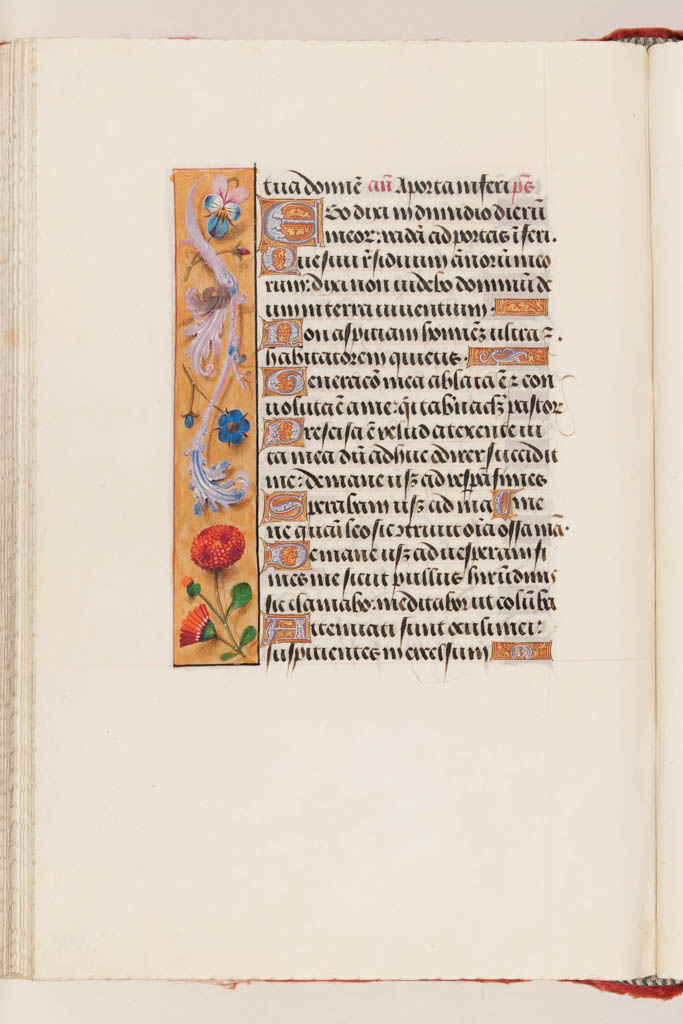 tua domiē añ Aporta inferi p̄s
EGo dixi in dimidio dierū
meor: vadā ad portas īferi.
Quesiui r̄siduum ānorū meo
rum: dixi non uidebo dominū de
um in terra uiuentium.
Non aspitiam hominēz ultra ⁊.
habitatorem quietis.
Generacō mea ablata ē ⁊ con
uoluta ē a me: q̄i tabnaclz pastor
Prescisa ē velud a texente ui
ta mea dū adhuc ordirer succidit
me: de mane usz ad vesp̄a fines
Sperabam usz ad ma me
ne quasi leo sic ztriuit oīa ossa mā.
Demane usz ad uesperam fi
nies me sicut pullus hirūdinis
sic clamabo: meditabor ut colūba
Atenuati sunt oculi mei:
suspitientes in excelsum